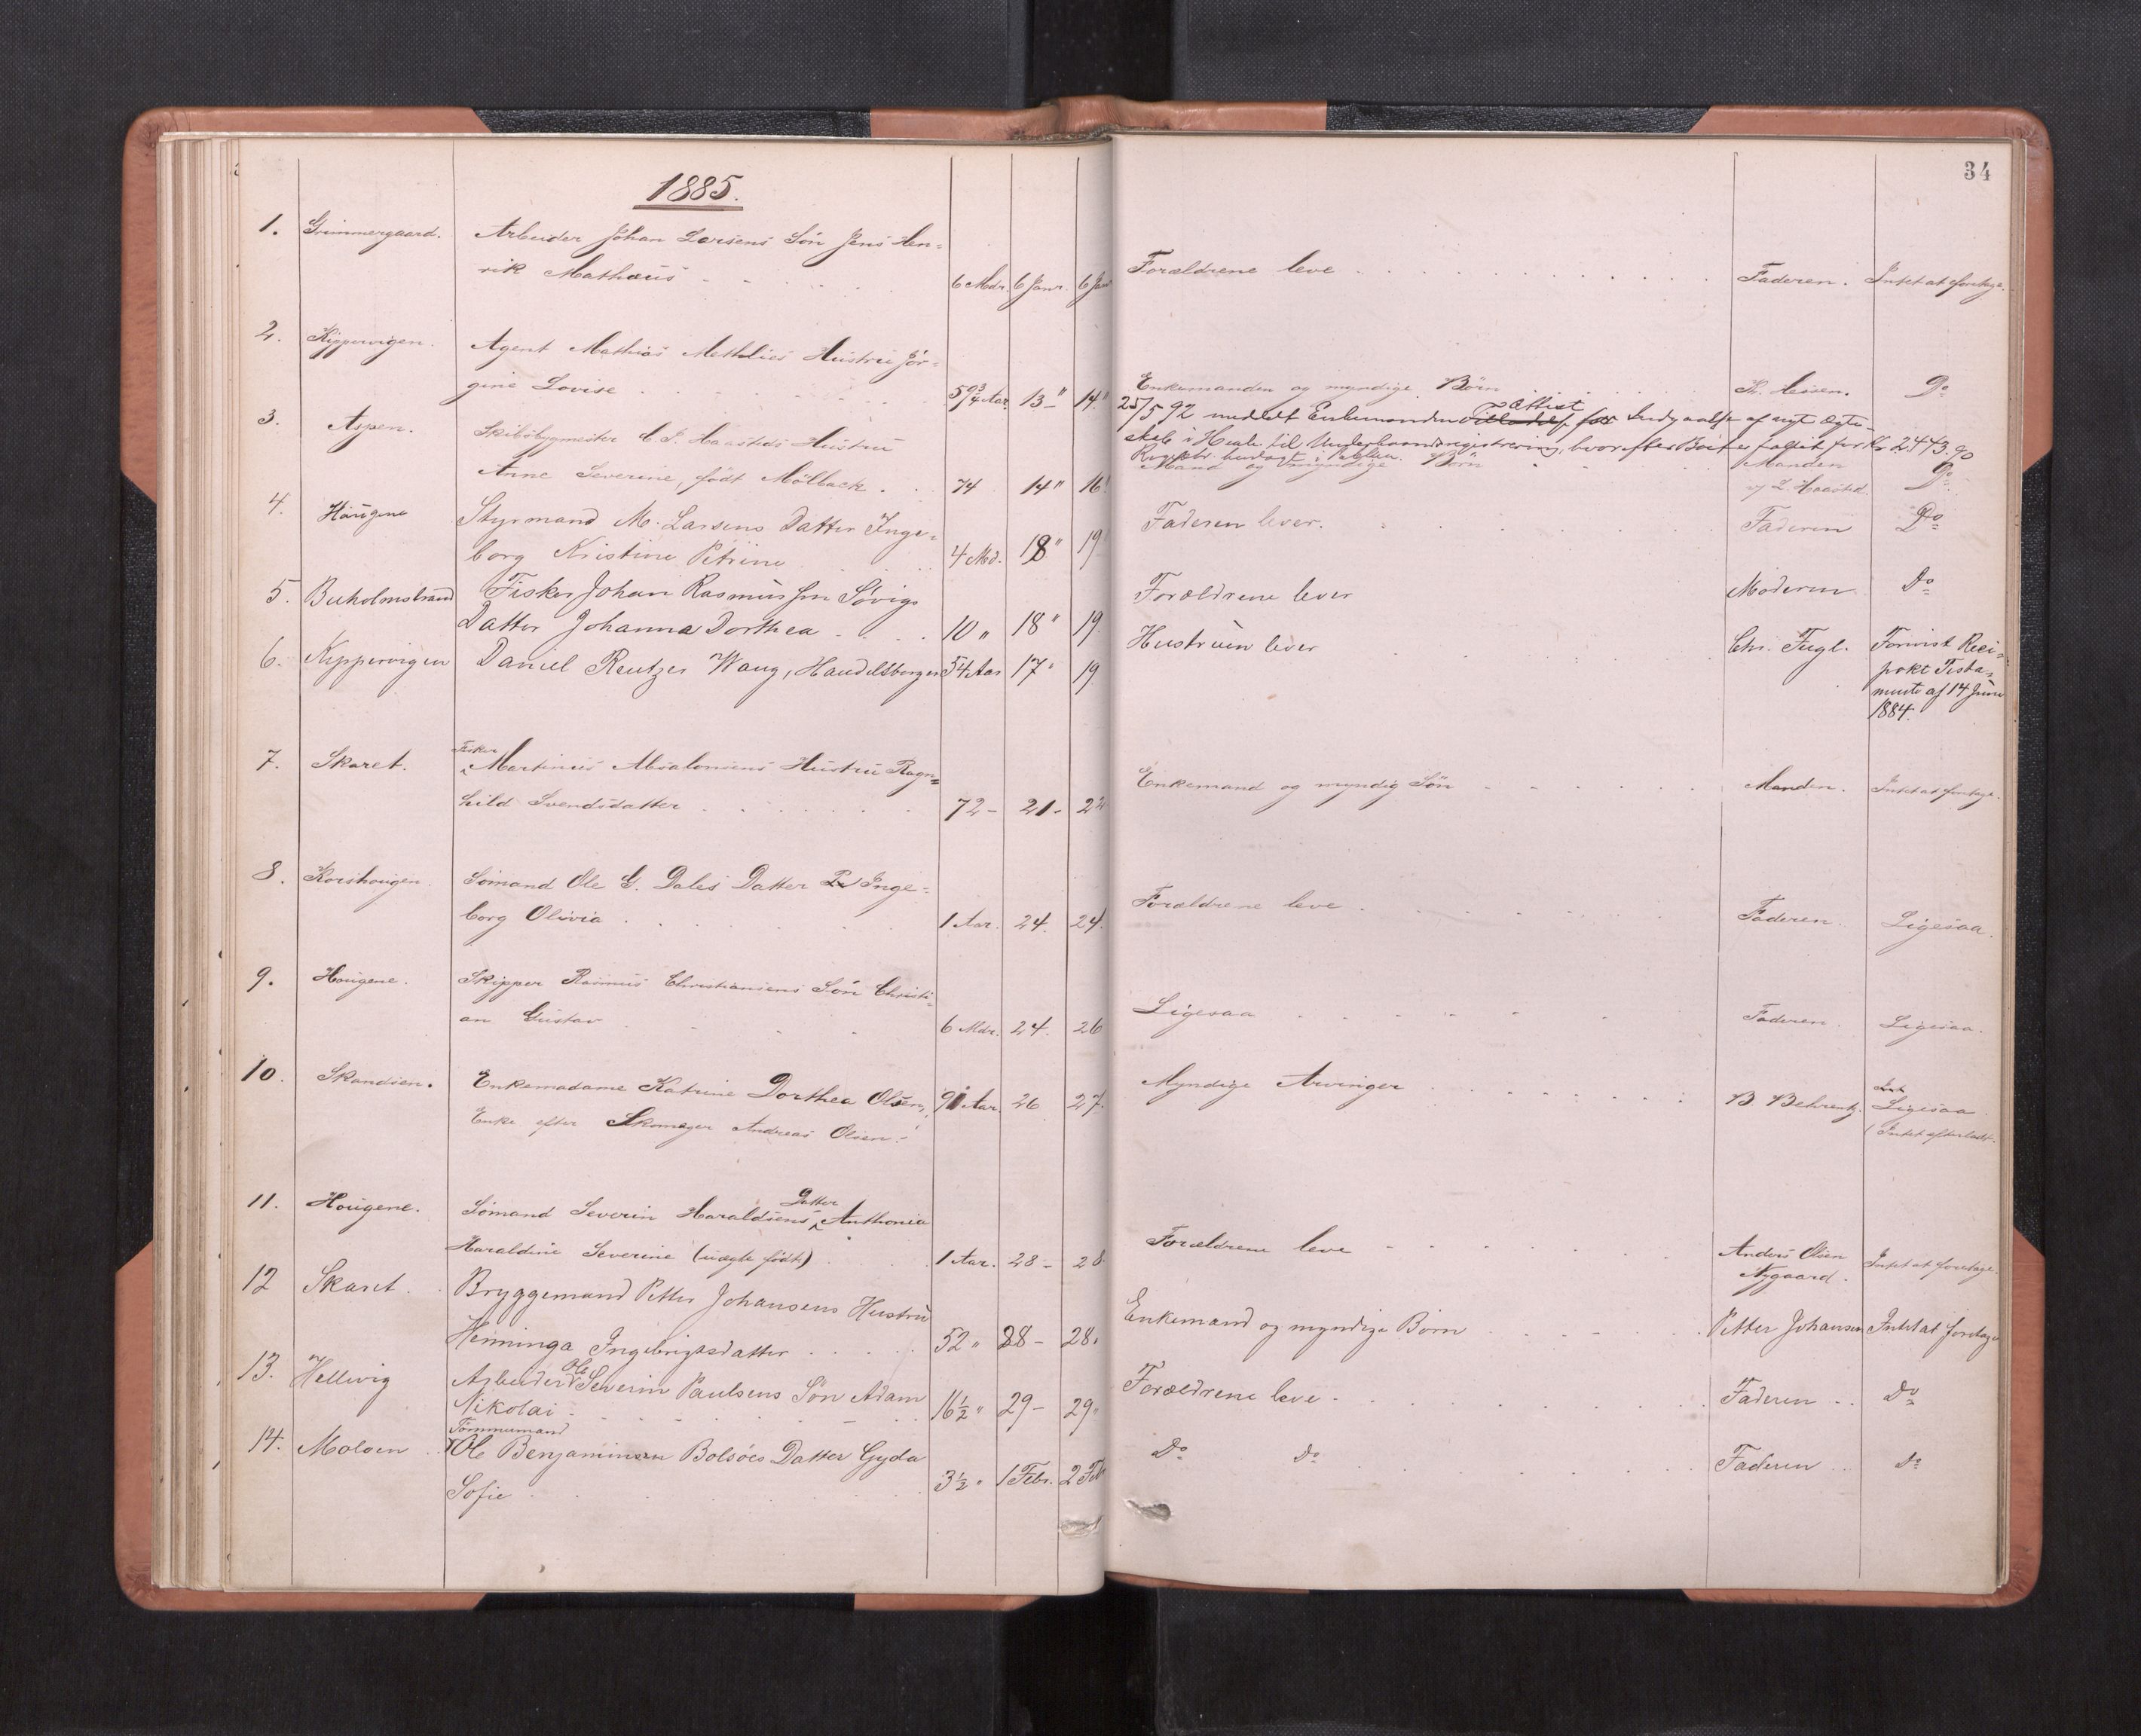 34
1885.
1. Grimmergaard. Arbeider Johan Larsens Sön Jens Hen-
rik Mathæus 6 Mdr. 6 Janr. 6 Jan Forældrene leve Faderen. Intet at foretage.
2. Kippervigen. Agent Mathias Methlies Hustru Jör-
gine Lovise 59 3/4 Aar. 13 " 14 " Enkemanden og myndige Börn Do
25/5 92 meddelt Enkemanden Attist Indgaaelse af nyt Ægte-
skab i Hen til Underhaandsregistrering, hvorefter Boet er for Kr 2443.90
3. Aspen. Skibsbygmester C. J. Haasteds Hustru
Anne Severine, født Mölback. 74 14 " 16 " Mand og myndige Börn Manden Do
v/ L. Haasted.
4. Hougene Styrmand M. Larsens Datter Inge-
borg Kristine Petrine 4 Md. 18 " 19 Faderen lever. Faderen Do
5. Buholmstrand Fisker Johan Rasmussen Søvigs
Datter Johanna Dorthea 10 " 18 " 19. Forældrene lever Moderen Do
6. Kippervigen Daniel Reutzer Waug, Handelsborger 54 Aar 17 " 19 Hustruen lever Chr. Fugl. Formst Reci-
prokt Testa-
mente af 14 Juni
1884.
7. Skaret. Fisker Martinus Absalonsens Hustru Ragn-
hild Svendsdatter 72 - 21 - 22 Enkemand og myndig Sön Manden. Intet at foretage.
8. Korshougen. Sömand Ole G. Dales Datter Inge-
borg Olivia 1 Aar. 24. 24. Forældrene leve Faderen. Ligesaa.
9. Hougene. Skipper Rasmus Christiansens Sön Christi-
an Gustav 6 Mdr. 24. 26 Ligesaa Faderen. Ligesaa.
10. Skandsen. Enkemadame Katrine Dorthea Olsen, 91 Aar. 26 27. Myndige Arvinger B. Behrentz. Ligesaa
Enke efter Skomager Andreas Olsen. Intet efterladt.
11. Hougene. Sömand Severin Haraldsens Datter Anthonia
Haraldine Severine (uægte født) 1 Aar. 28 - 28 Forældrene leve Anders Olsen Intet at foretage.
Nygaard.
12 Skaret. Bryggemand Petter Johansens Hustru
Henninga Ingebrigtsdatter 52 " 28 - 28. Enkemand og myndige Børn Petter Johansen Intet at foretage
13. Hellevig Arbeider Ole Severin Paulsens Søn Adam
Nikolai 16 1/2 " 29 - 29 " Forældrene leve Faderen Do
14. Moloen Tömmermand Ole Benjaminsen Bolsöes Datter Gyda
Sofie 3 1/2 " 1 Febr. 2 Feb Do Do Faderen Do